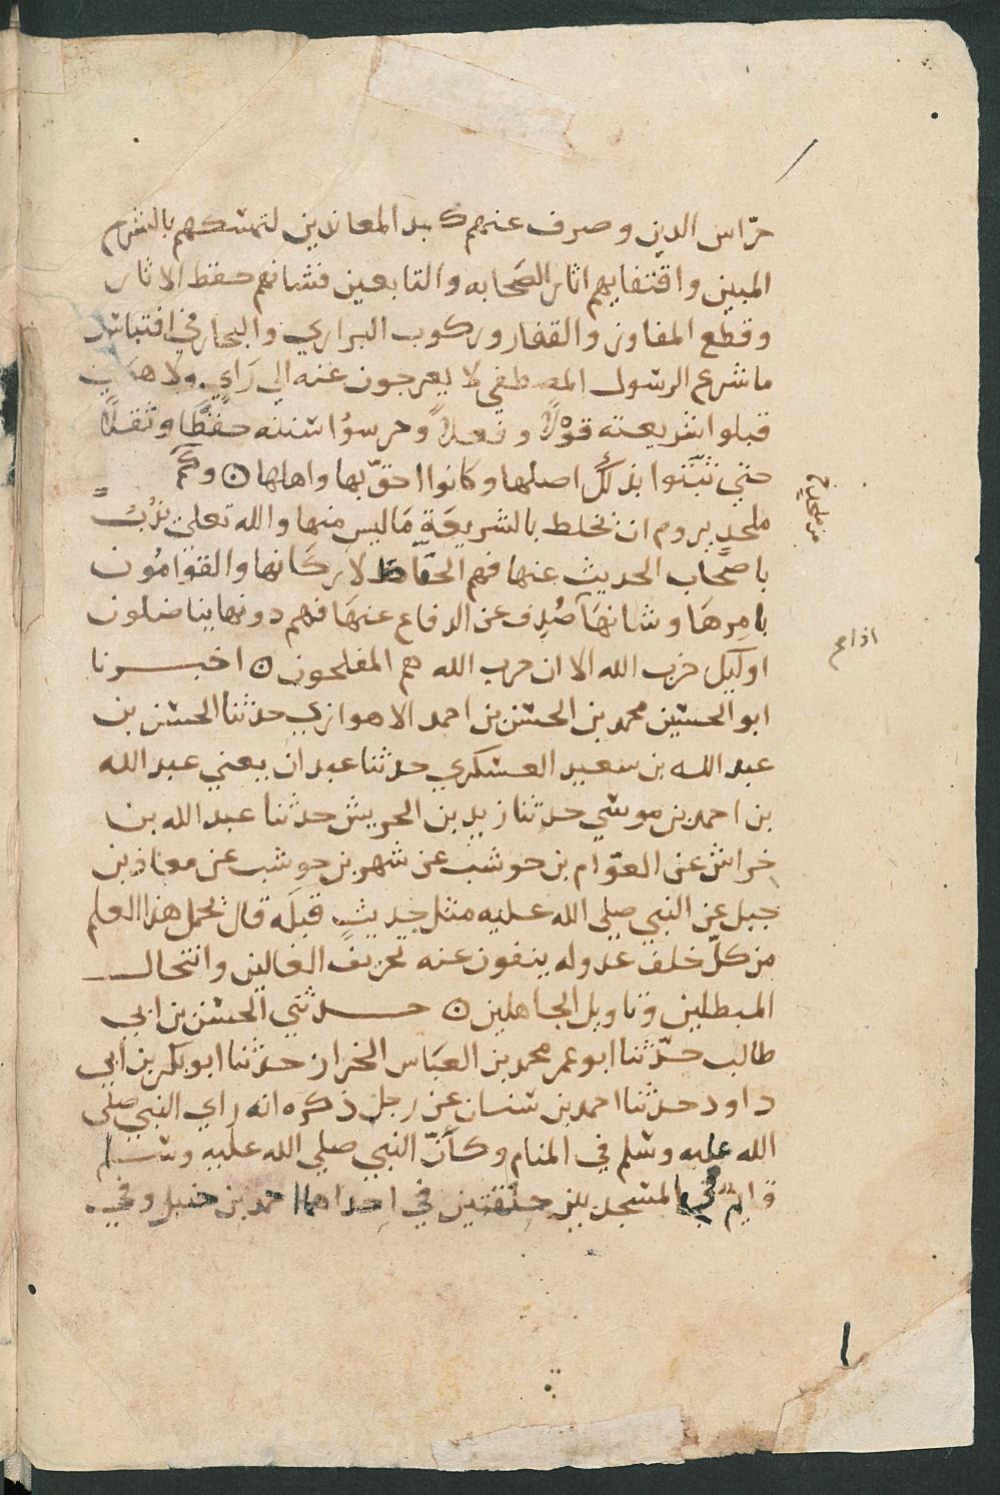 حرّاس الدين وصرف عنهم كيد المعاندين لتمسكهم بالشرع
المبين واقتفايهم اثار الصحابه والتابعين فشانهم حفظ الاثار
وقطع المفاوز والقفار وركوب البراري والبحار في اقتباس
ما شرع الرسول المصطفى لا يعرجون عنه الى رَايٍ ولا هوى
قبلوا شريعته قولًا وفعلًا وحرسوُا سنته حفظًا ونقلًا
حتي ثبّتوا بذلك اصلها وكانوا احقّ بها واهلها ه وكم
ملحدٍ يروم ان يخلط بالشريعَةِ مَا ليس منها والله تعلى يذُبّ
باصحَاب الحديث عنها فهم الحفّاظ لاركَانها والقوامُون
بامِرهَا وشانهَا صُدِف عن الدفاع عنهَا فهم دونها يناضلون
اوليك حزب الله الا ان حزب الله هم المفلحون ه اخبرنا
ابو الحسين محمد بن الحسن بن احمد الاهوازي حدثنا الحسن بن
عبد الله بن سعيد العسكري حدثنا عبدان يعني عبد الله
بن احمد بن موسي حدثنا زيد بن الحريش حدثنا عبد الله بن
خراش عن العوّام بن حوشب عن شهر بن حوشب عن معاذ بن
جبل عن النبي صلى الله عليه مثل حديثٍ قبلَه قال يحمل هذا العلم
من كلّ خلف عدوله ينفون عنه تحريف الغالين وانتحال
المبطلين وتاويل الجاهلين ه حدثني الحسن بن ابي
طالب حدّثنا ابو عمر محمد بن العبَاس الخزاز حدثنا ابو بكر بن أبي
داود حدثنا احمد بن سنان عن رجل ذكره انه راي النبي صلى
الله عليه وسلم في المنام وكأنّ النبي صلى الله عليه وسلم
قايم في المسجد بين حلقتين في احداهما احمد بن حنبل وفي
من ملحدٍ
اذا صح